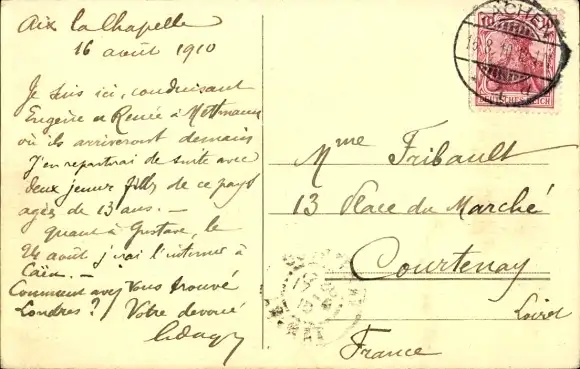 Aix la Chapelle
16 août 1910
Je suis ici, conduisant
Eugène et Renée à Mettmann
où ils arriveront demain
J'en repartirai de suite avec
deux jeunes filles de ce pays
agées de 13 ans. —
quant à Gustave, le
24 août j'irai l'interner à
Caën. —
Comment avez Vous trouvé
Londres? Votre dévoué
AACHEN
10
DEUTSCHES REICH
Mme Fribault
13 Place du Marché
Courtenay
Loiret
France